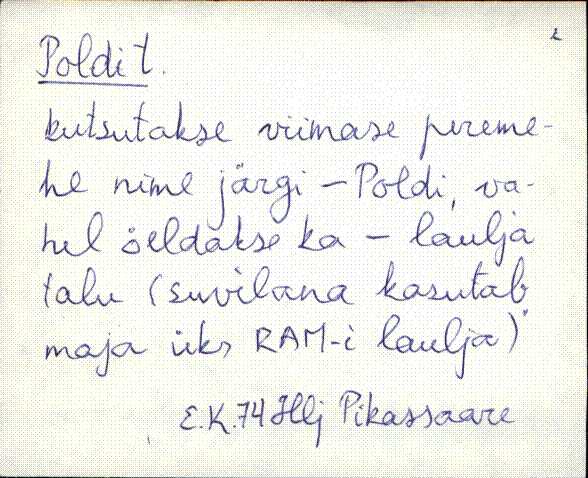 2
Poldi t.
kutsutakse viimase pereme-
he nime järgi – Poldi, va-
hel öeldakse ka – laulja
talu (suvilana kasutab
maja üks RAM-i laulja)
E.K. 74 Hlj Pikassaare